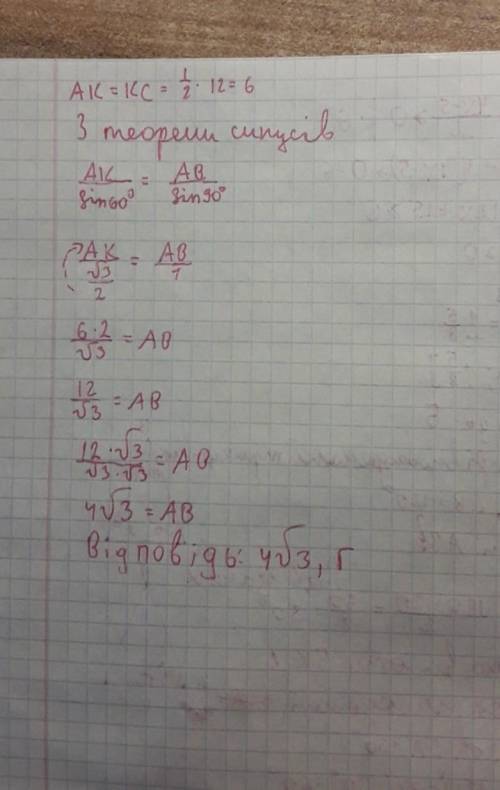 AK = KC = 1/2 · 12 = 6
З теореми синусів
AK/sin60° = AB/sin90°
AK/(√3/2) = AB/1
6·2/√3 = AB
12/√3 = AB
12·√3/√3·√3 = AB
4√3 = AB
Відповідь: 4√3, Г